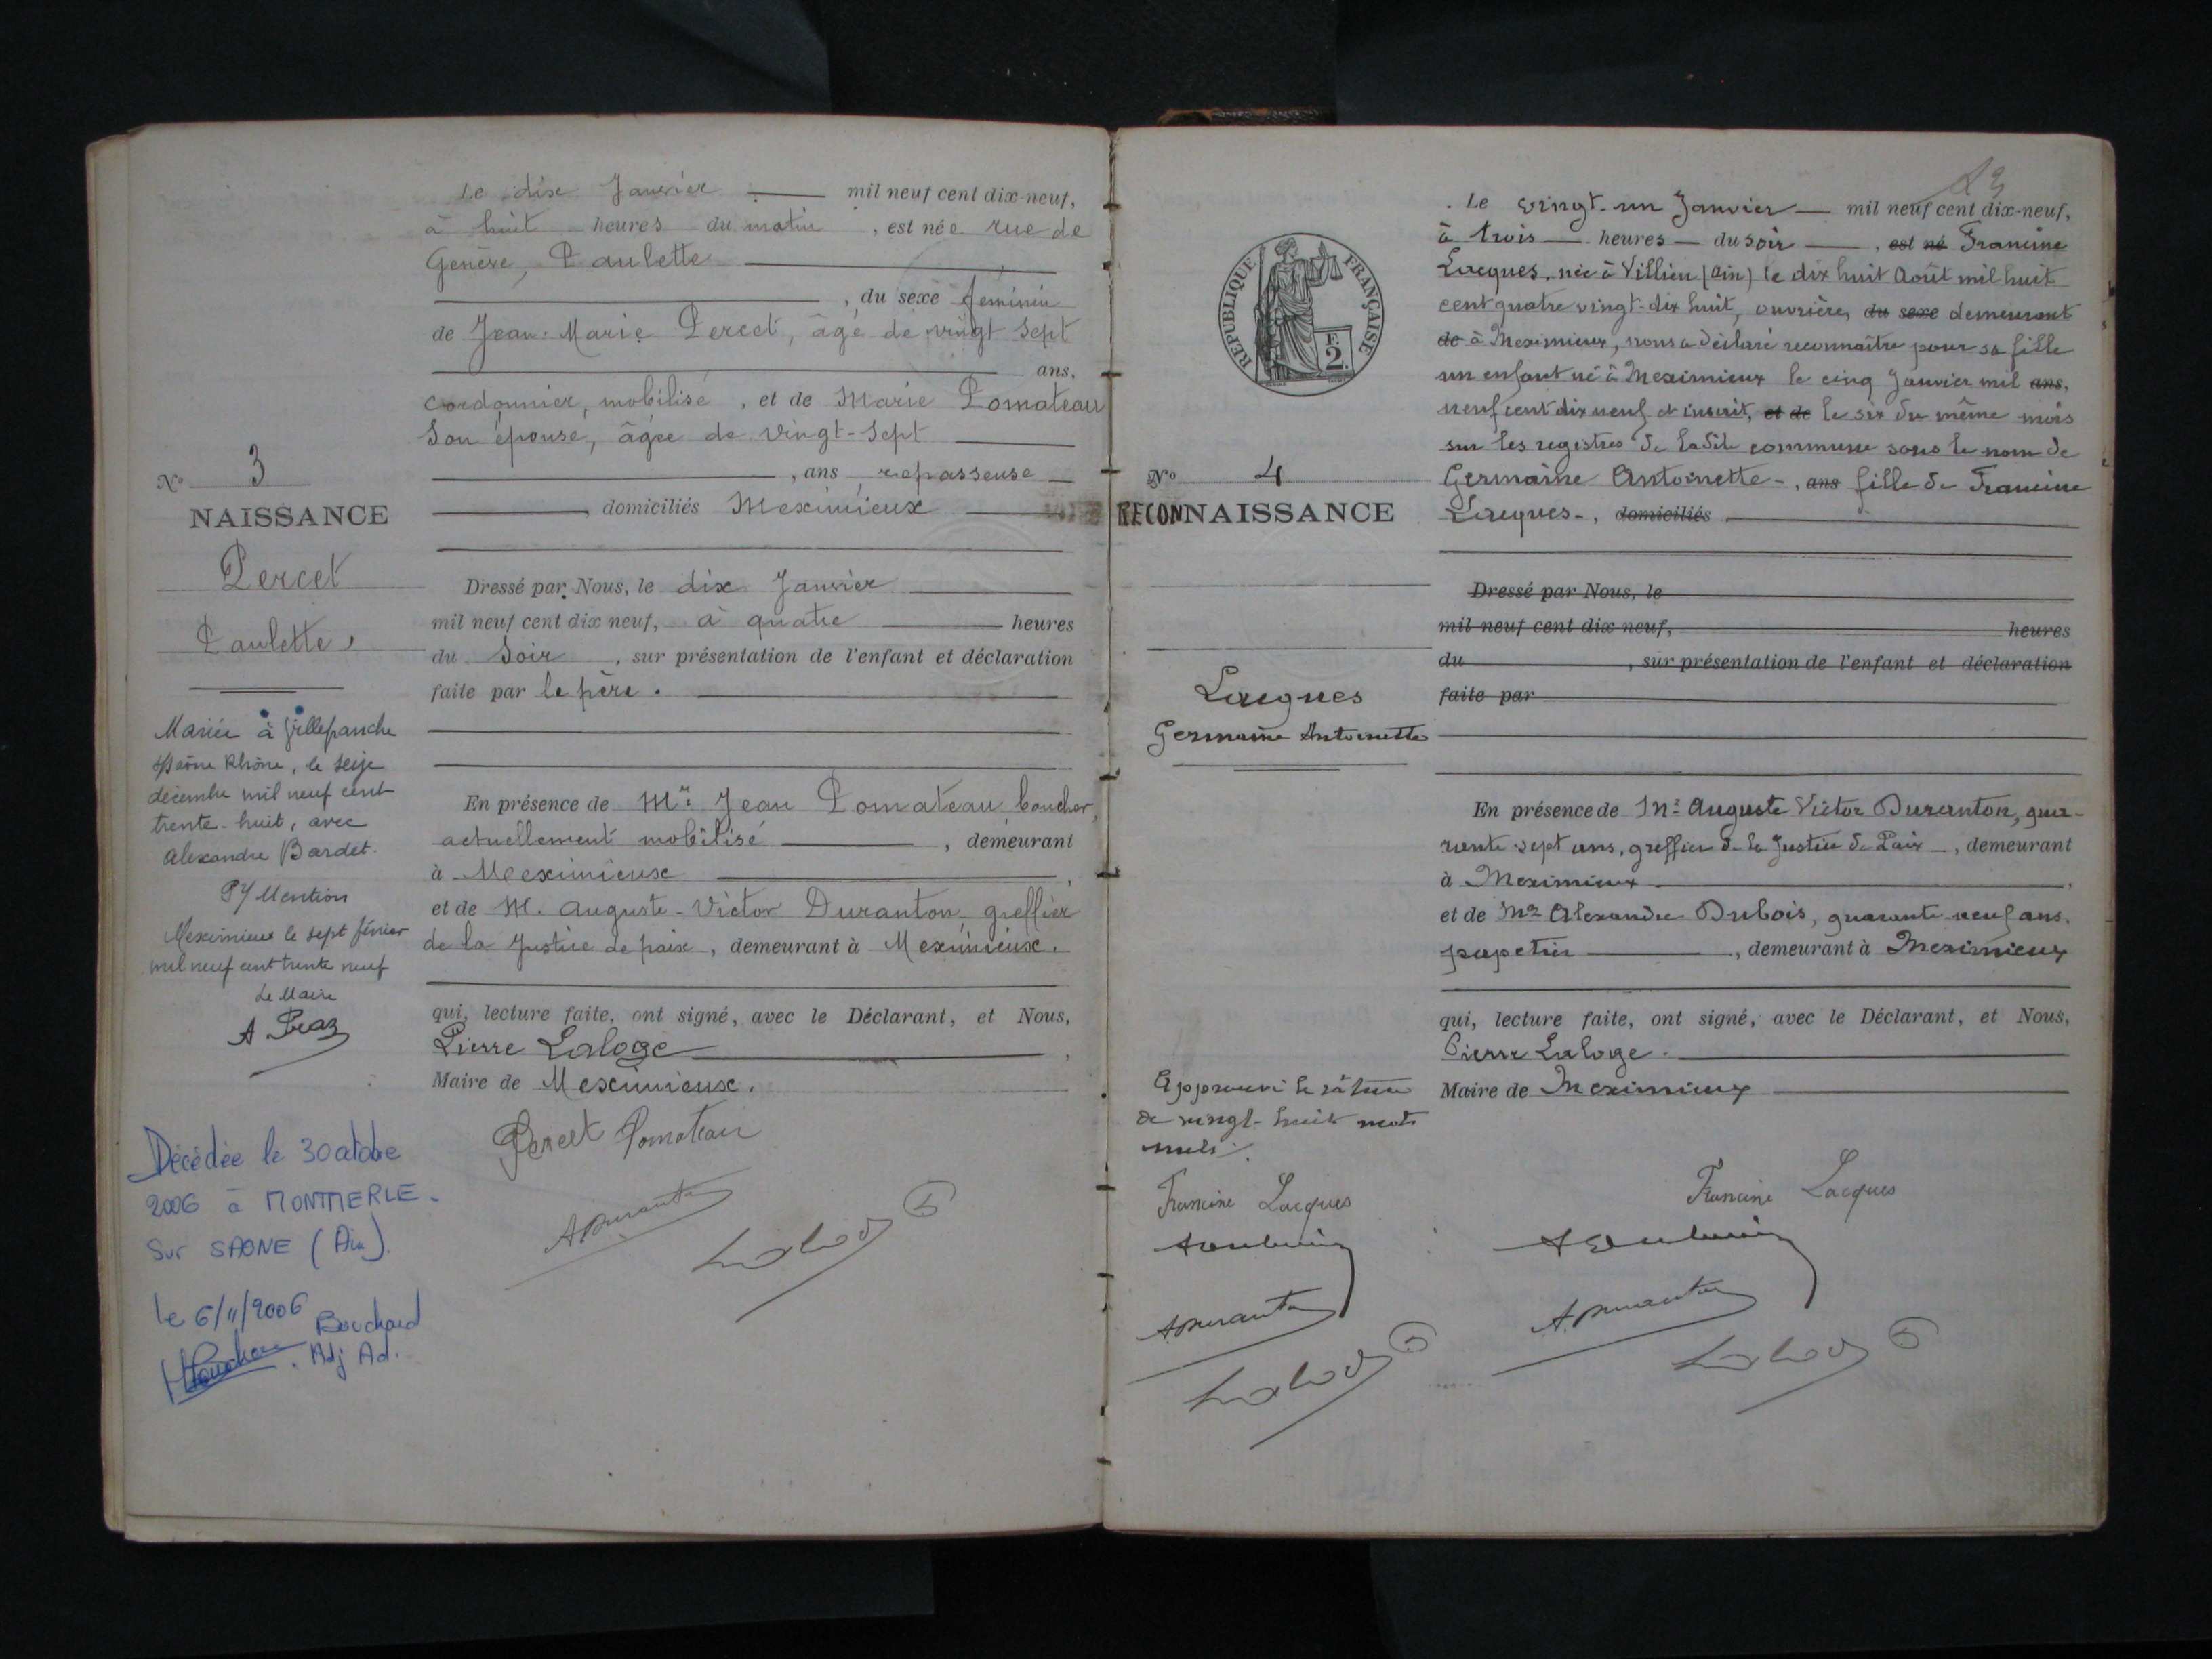 Le dix Janvier mil neuf cent dix-neuf,
à huit heures du matin, est née rue de
Genève, Paulette
, du sexe féminin
de Jean-Marie Percet, âgé de vingt sept
ans,
cordonnier, mobilisé, et de Marie Pomateau
Son épouse, âgée de vingt-sept
, ans, repasseuse
domiciliés Meximieux
Dressé par Nous, le dix Janvier
mil neuf cent dix neuf, à quatre heures
du Soir, sur présentation de l'enfant et déclaration
faite par le père.
En présence de Mr Jean Pomateau, boucher,
actuellement mobilisé, demeurant
à Meximieux,
et de M. Auguste-Victor Duranton, greffier
de la Justice de paix, demeurant à Meximieux.
qui, lecture faite, ont signé, avec le Déclarant, et Nous,
Pierre Laloge,
Maire de Meximieux.
Percet Pomateau
ADuranton
No 3
NAISSANCE
Percet
Paulette
Mariée à Villefranche
s/Saône Rhône, le seize
décembre mil neuf cent
trente-huit, avec
Alexandre Bardet.
Pr Mention
Meximieux le sept février
mil neuf cent trente neuf
Le Maire
Décédée le 30 octobre
2006 à MONTMERLE
Sur SAONE (Ain).
le 6/11/2006 Bouchard
Adj Ad.
23
Le vingt-un Janvier mil neuf cent dix-neuf,
à trois heures du soir, est né Francine
Lacques, née à Villieu (Ain) le dix huit Août mil huit
cent quatre vingt-dix huit, ouvrière, du sexe demeurant
de à Meximieux, nous a déclaré reconnaître pour sa fille
un enfant né à Meximieux le cinq Janvier mil ans,
neuf cent dix neuf et inscrit, et de le six du même mois
sur les registres de ladite commune sous le nom de
Germaine Antoinette, ans fille de Francine
Lacques, domiciliés
Dressé par Nous, le
mil neuf cent dix neuf, heures
du, sur présentation de l'enfant et déclaration
faite par
En présence de Mr Auguste Victor Duranton, qua-
rante-sept ans, greffier de la Justice de Paix, demeurant
à Meximieux,
et de Mr Alexandre Dubois, quarante neuf ans,
papetier, demeurant à Meximieux
qui, lecture faite, ont signé, avec le Déclarant, et Nous,
Pierre Laloge.
Maire de Meximieux
Francine Lacques
A Duranton
RÉPUBLIQUE FRANÇAISE
F.
2.
No 4
RECONNAISSANCE
Lacques
Germaine Antoinette
Approuvé la rature
de vingt-huit mots
nuls.
Francine Lacques
ADuranton